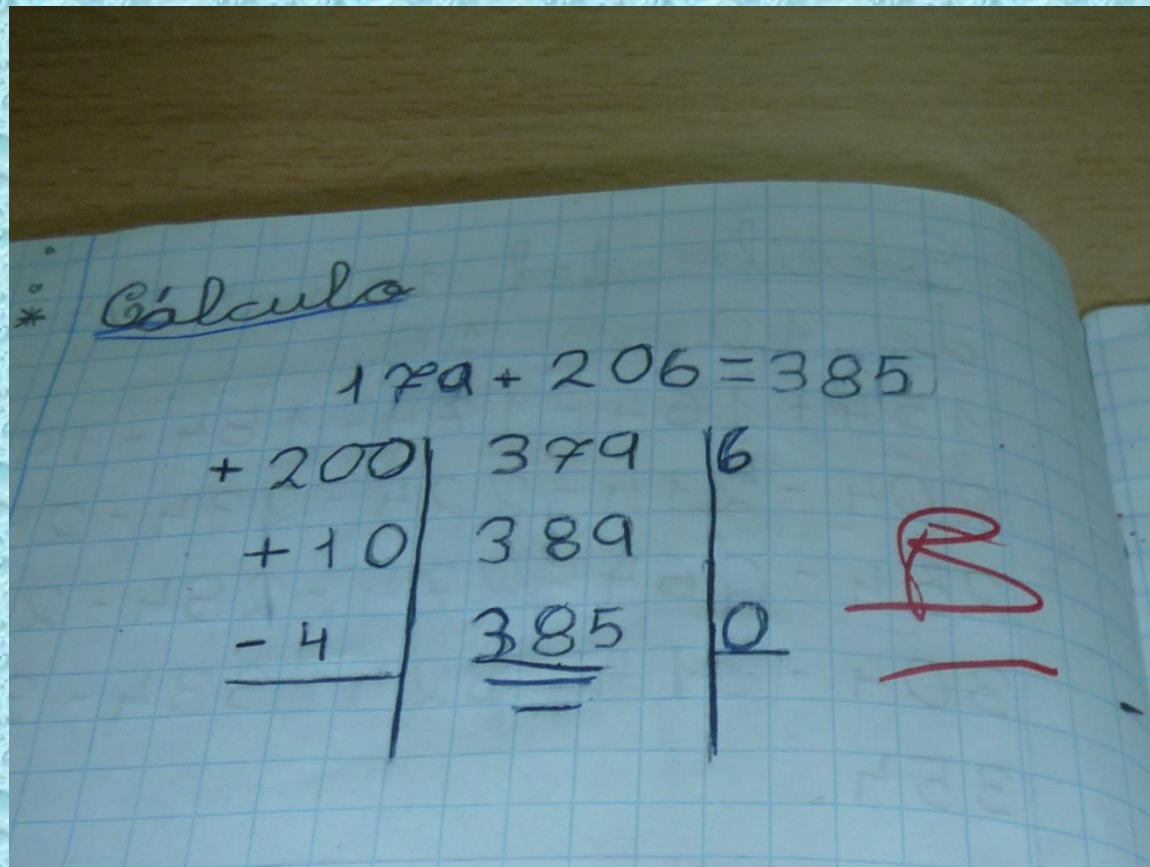 * Cálculo
179 + 206 = 385
+ 200 | 379 | 6
+ 10 | 389 |
- 4 | 385 | 0
B